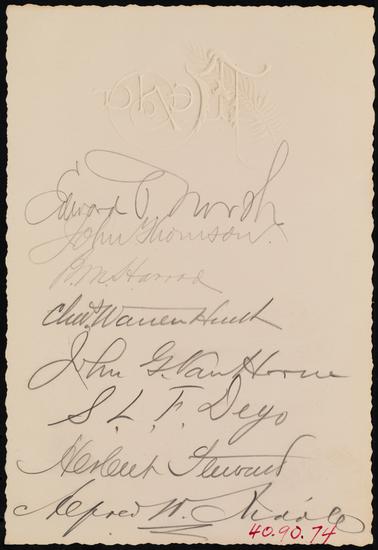 Edward P. North
John Thomson.
B. M. Harrod
Chas. Warren Hunt
John G. Van Horne
S. L. F. Deyo
Herbert Steward
Alfred W.
40.90.74